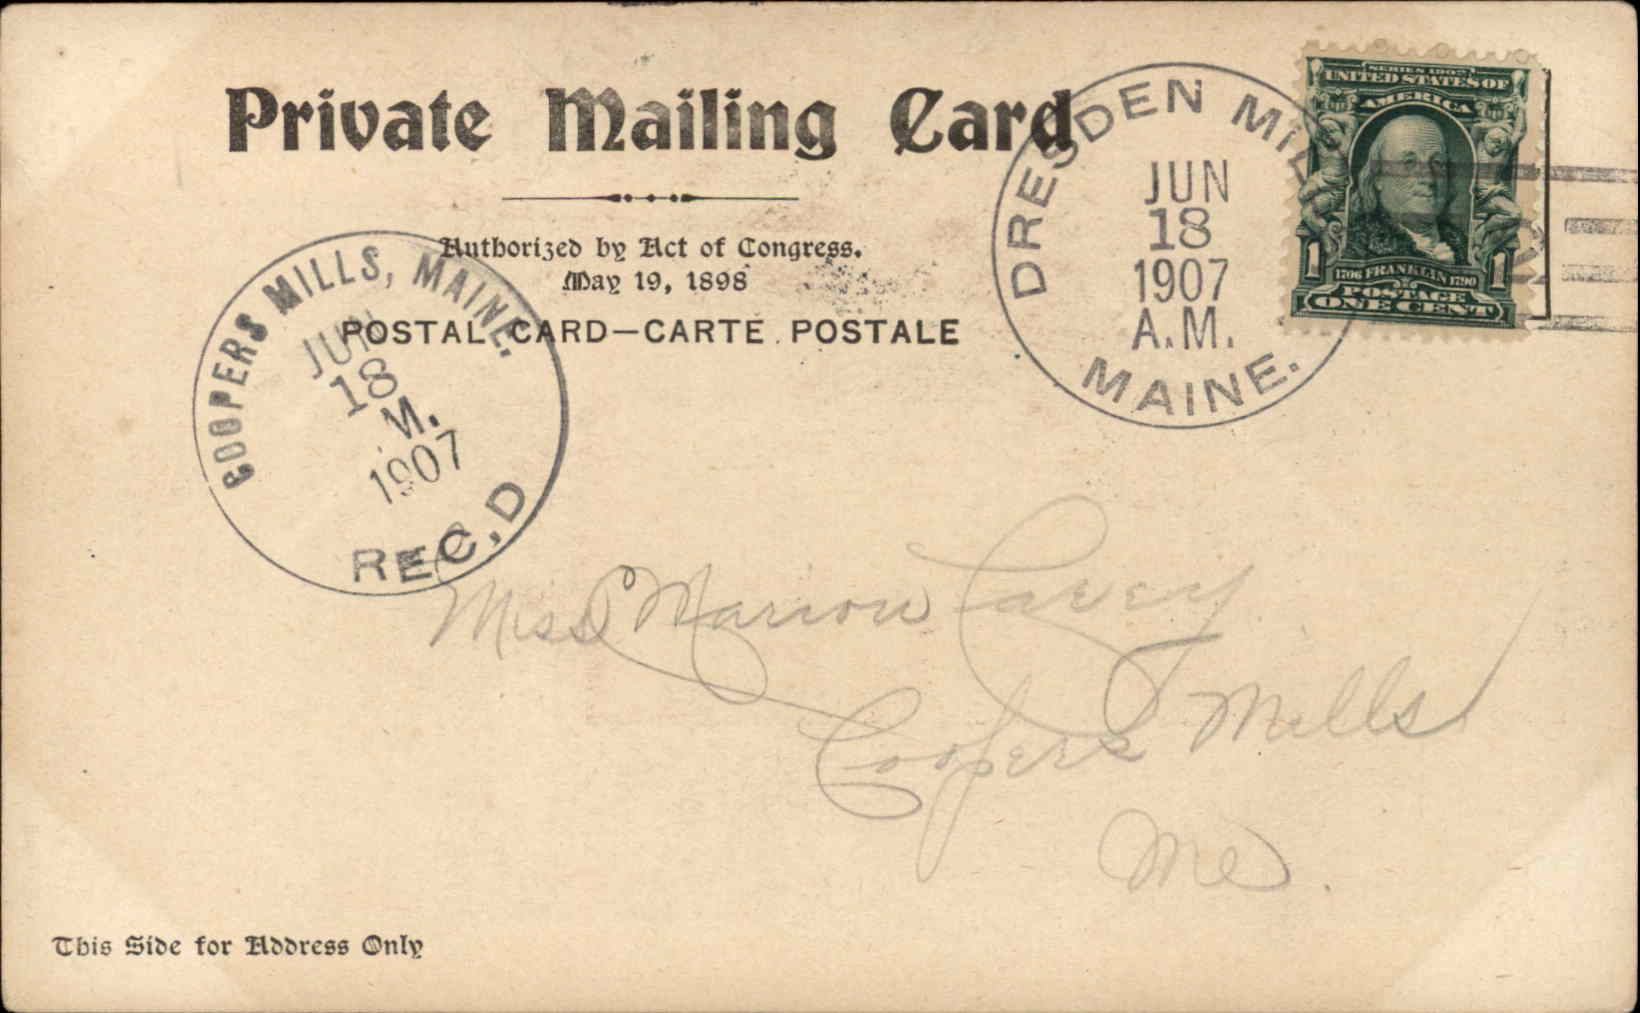 Private Mailing Card
Authorized by Act of Congress.
May 19, 1898
POSTAL CARD—CARTE POSTALE
DRESDEN MILL
JUN
18
1907
A.M.
MAINE.
SERIES 1902
UNITED STATES OF
AMERICA
1706 FRANKLIN 1790
1 1
POSTAGE
ONE CENT
COOPERS MILLS, MAINE.
JUN
18
M.
1907
REC,D
Miss Marion
Coopers Mills
Me.
This Side for Address Only